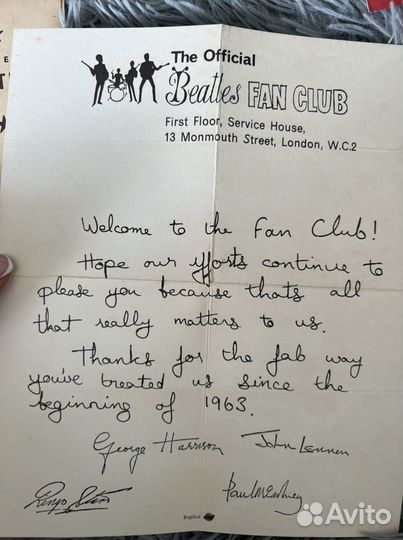 The Official
Beatles FAN CLUB
First Floor, Service House,
13 Monmouth Street, London, W.C.2
Welcome to the Fan Club!
Hope our efforts continue to
please you because thats all
that really matters to us.
Thanks for the fab way
you've treated us since the
beginning of 1963.
George Harrison John Lennon
Ringo Starr Paul McCartney
Replica
Avito